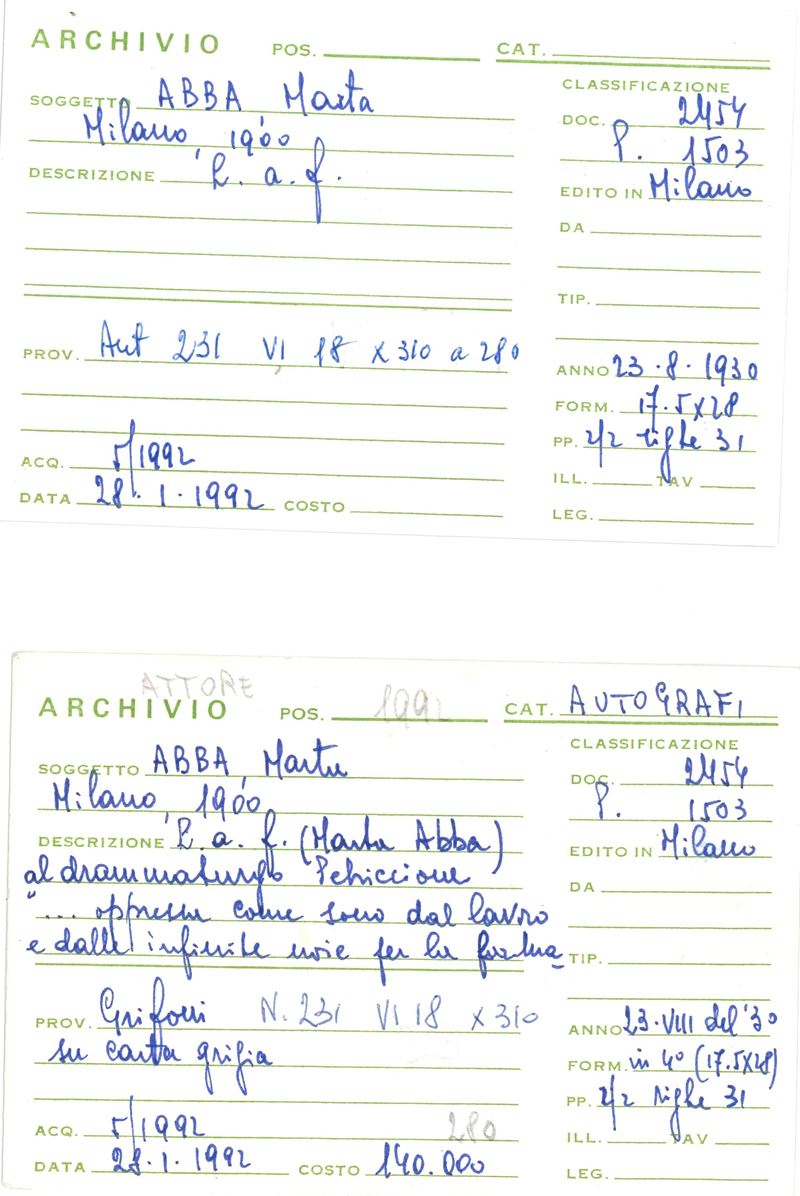 ARCHIVIO POS. CAT.
SOGGETTO ABBA Marta
Milano, 1900
DESCRIZIONE L. a. f.
CLASSIFICAZIONE
DOC. 2454
P. 1503
EDITO IN Milano
DA
TIP.
PROV. Aut 231 VI 18 x 310 a 280
ANNO 23.8.1930
FORM. 17.5x28
PP. 2/2 righe 31
ACQ. 5/1992
ILL. TAV
DATA 28.1.1992 COSTO
LEG.
ATTORE
ARCHIVIO POS. 1992 CAT. AUTOGRAFI
SOGGETTO ABBA, Marta
Milano, 1900
DESCRIZIONE L. a. f. (Marta Abba)
al drammaturgo Petriccione
"... oppressa come sono dal lavoro
e dalle infinite noie per la forma_
CLASSIFICAZIONE
DOC. 2454
P. 1503
EDITO IN Milano
DA
TIP.
PROV. Grifoni N. 231 VI 18 x 310
su carta grigia
ANNO 23.VIII del '30
FORM. in 4° (17.5x28)
PP. 2/2 righe 31
ACQ. 5/1992 280
ILL. TAV
DATA 28.1.1992 COSTO 140.000
LEG.